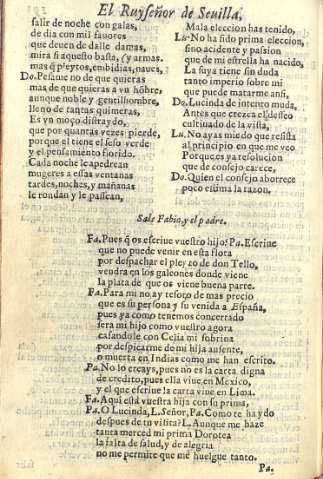 El Ruyseñor de Seuilla,
salir de noche con galas,
de dia con mil fauores
que deuen de dalle damas,
mira si aquesto basta, (y armas.
mas q̃ pleytos, embidias, naues,
Do. Pesame no de que quieras
mas de que quieras a vn hõbre,
aunque noble y gentilhombre,
lleno de tantas quimeras,
Es vn moço distraydo,
que por quantas vezes pierde,
porque el tiene el seso verde
y el pensamiento florido.
Cada noche le apedrean
mugeres a essas ventanas
tardes, noches, y mañanas
le rondan y le passean,
Mala eleccion has tenido,
Lu. No ha sido prima eleccion,
sino accidente y passion
que de mi estrella ha nacido,
La suya tiene sin duda
tanto imperio sobre mi
que puede matarme ansi,
Do. Lucinda de intento muda,
Antes que crezca el desseo
cultiuado de la vista,
Lu. No ay as miedo que resista
al principio en que me veo
Porque es ya resolucion
que de consejo carece,
Do. Quien el consejo aborrece
poco estima la razon.
Sale Fabio, y el padre.
Fa. Pues q̃ os escriue vuestro hijo? Pa. Escriue
que no puede venir en esta flota
por despachar el pleyto de don Tello,
vendra en los galeones donde viene
la plata de que os viene buena parte.
Fa. Para mi no ay tesoro de mas precio
que es su persona y su venida a España,
pues ya como tenemos concertado
sera mi hijo como vuestro agora
casandole con Celia mi sobrina
por despicarme de mi hija ausente,
o muerta en Indias como me han escrito.
Pa. No lo creays, pues no es la carta digna
de credito, pues ella viue en Mexico,
y el que escriue la carta viue en Lima.
Fa. Aqui està vuestra hija con su prima,
Pa. O Lucinda, L. Señor, Pa. Como te ha ydo
despues de tu visita? L. Aunque me haze
tanta merced mi prima Dorotea
la falta de salud, y de alegria
no me permite que me huelgue tanto.
Pa.